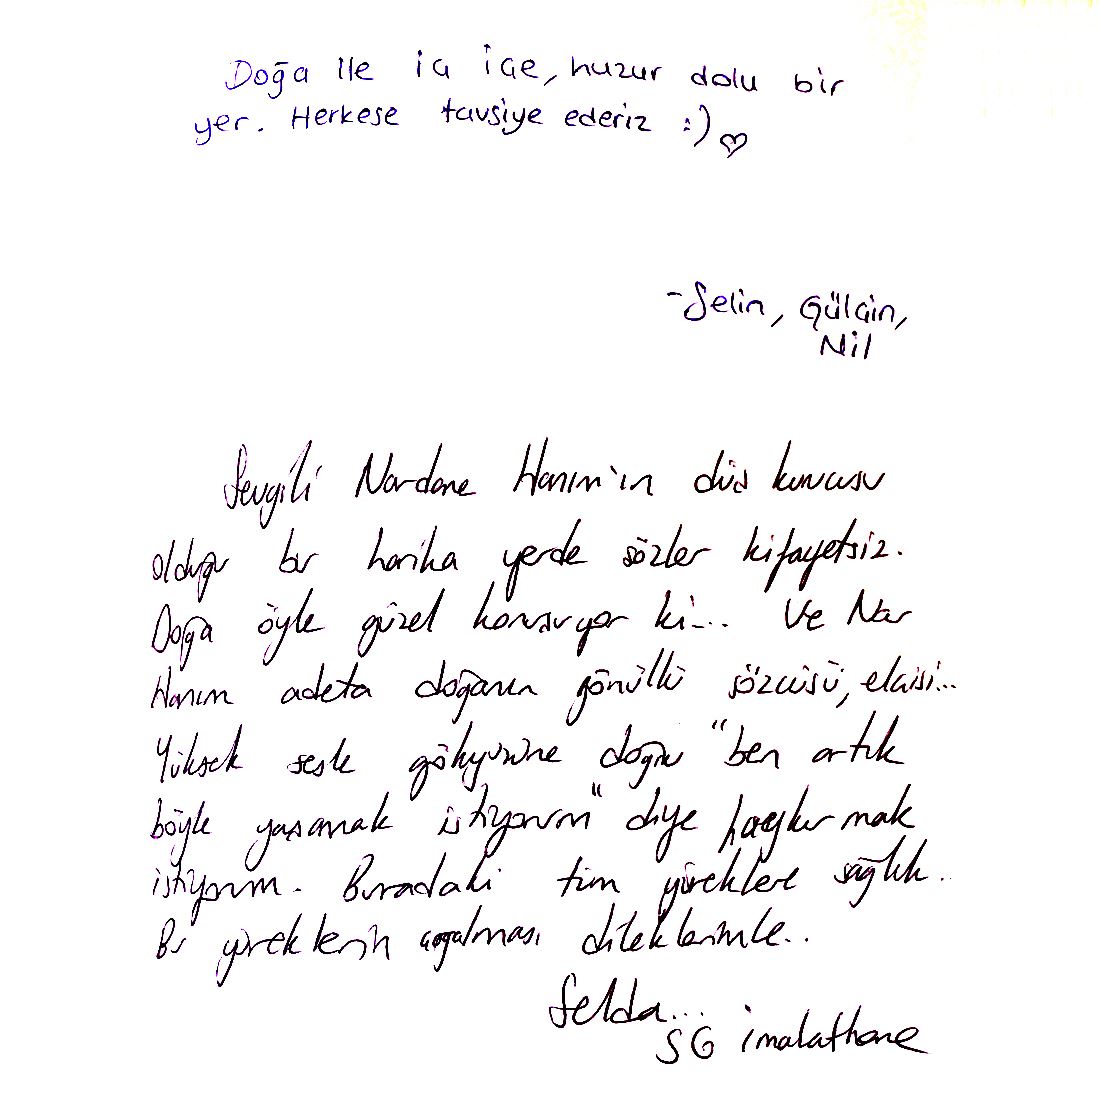 Doğa ile iç içe, huzur dolu bir
yer. Herkese tavsiye ederiz :) ♡
-Selin, Gülçin,
Nil
Sevgili Nardane Hanım'ın düş kurucusu
olduğu bu harika yerde sözler kifayetsiz.
Doğa öyle güzel konuşuyor ki... Ve Nar
Hanım adeta doğanın gönüllü sözcüsü, elçisi...
Yüksek sesle gökyüzüne doğru "ben artık
böyle yaşamak istiyorum" diye haykırmak
istiyorum. Buradaki tüm yüreklere sağlık.
Bu yüreklerin çoğalması dileklerimle..
Selda...
SG imalathane